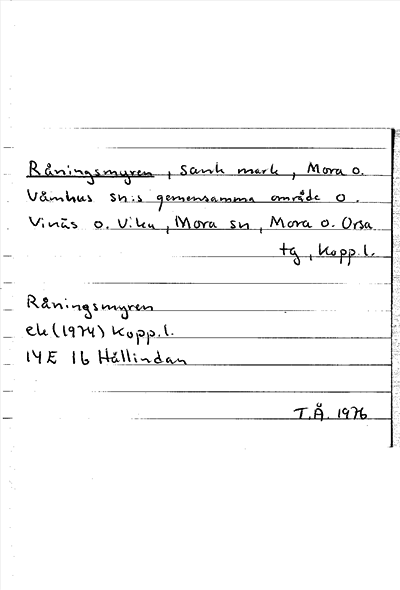 Råningsmyren, sank mark, Mora o.
Våmhus sn:s gemensamma område o.
Vinäs o. Vika, Mora sn, Mora o. Orsa
tg, Kopp.l.
Råningsmyren
ek (1974) Kopp.l.
14E 1b Hållindan
T.Å. 1976